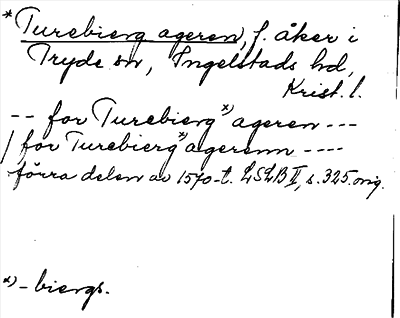 *Turebierg ageren, f. åker i
Tryde sn, Ingelstads hd,
Krist. l.
-- for Turebierg x) ageren ---
/ for Turebierg x) agerenn ----
förra delen av 1570-t. LSLB II, s. 325. orig.
x) - biergs.